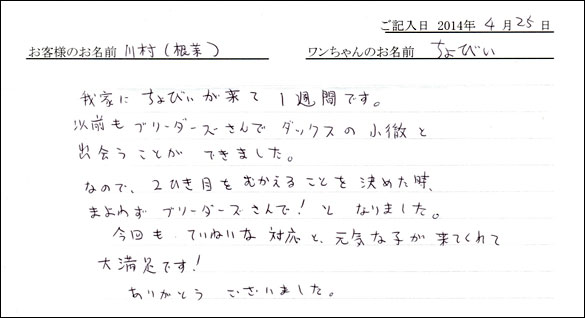 ご記入日 2014年 4月 25日
お客様のお名前 川村(根菜) ワンちゃんのお名前 ちょびぃ
我家に ちょびぃが来て 1週間です。
以前も ブリーダーズさんで ダックスの 小徹と
出会うことが できました。
なので、2ひき目を むかえることを 決めた時、
まよわず ブリーダーズさんで!と なりました。
今回も ていねいな 対応と、元気な子が 来てくれて
大満足です!
ありがとう ございました。